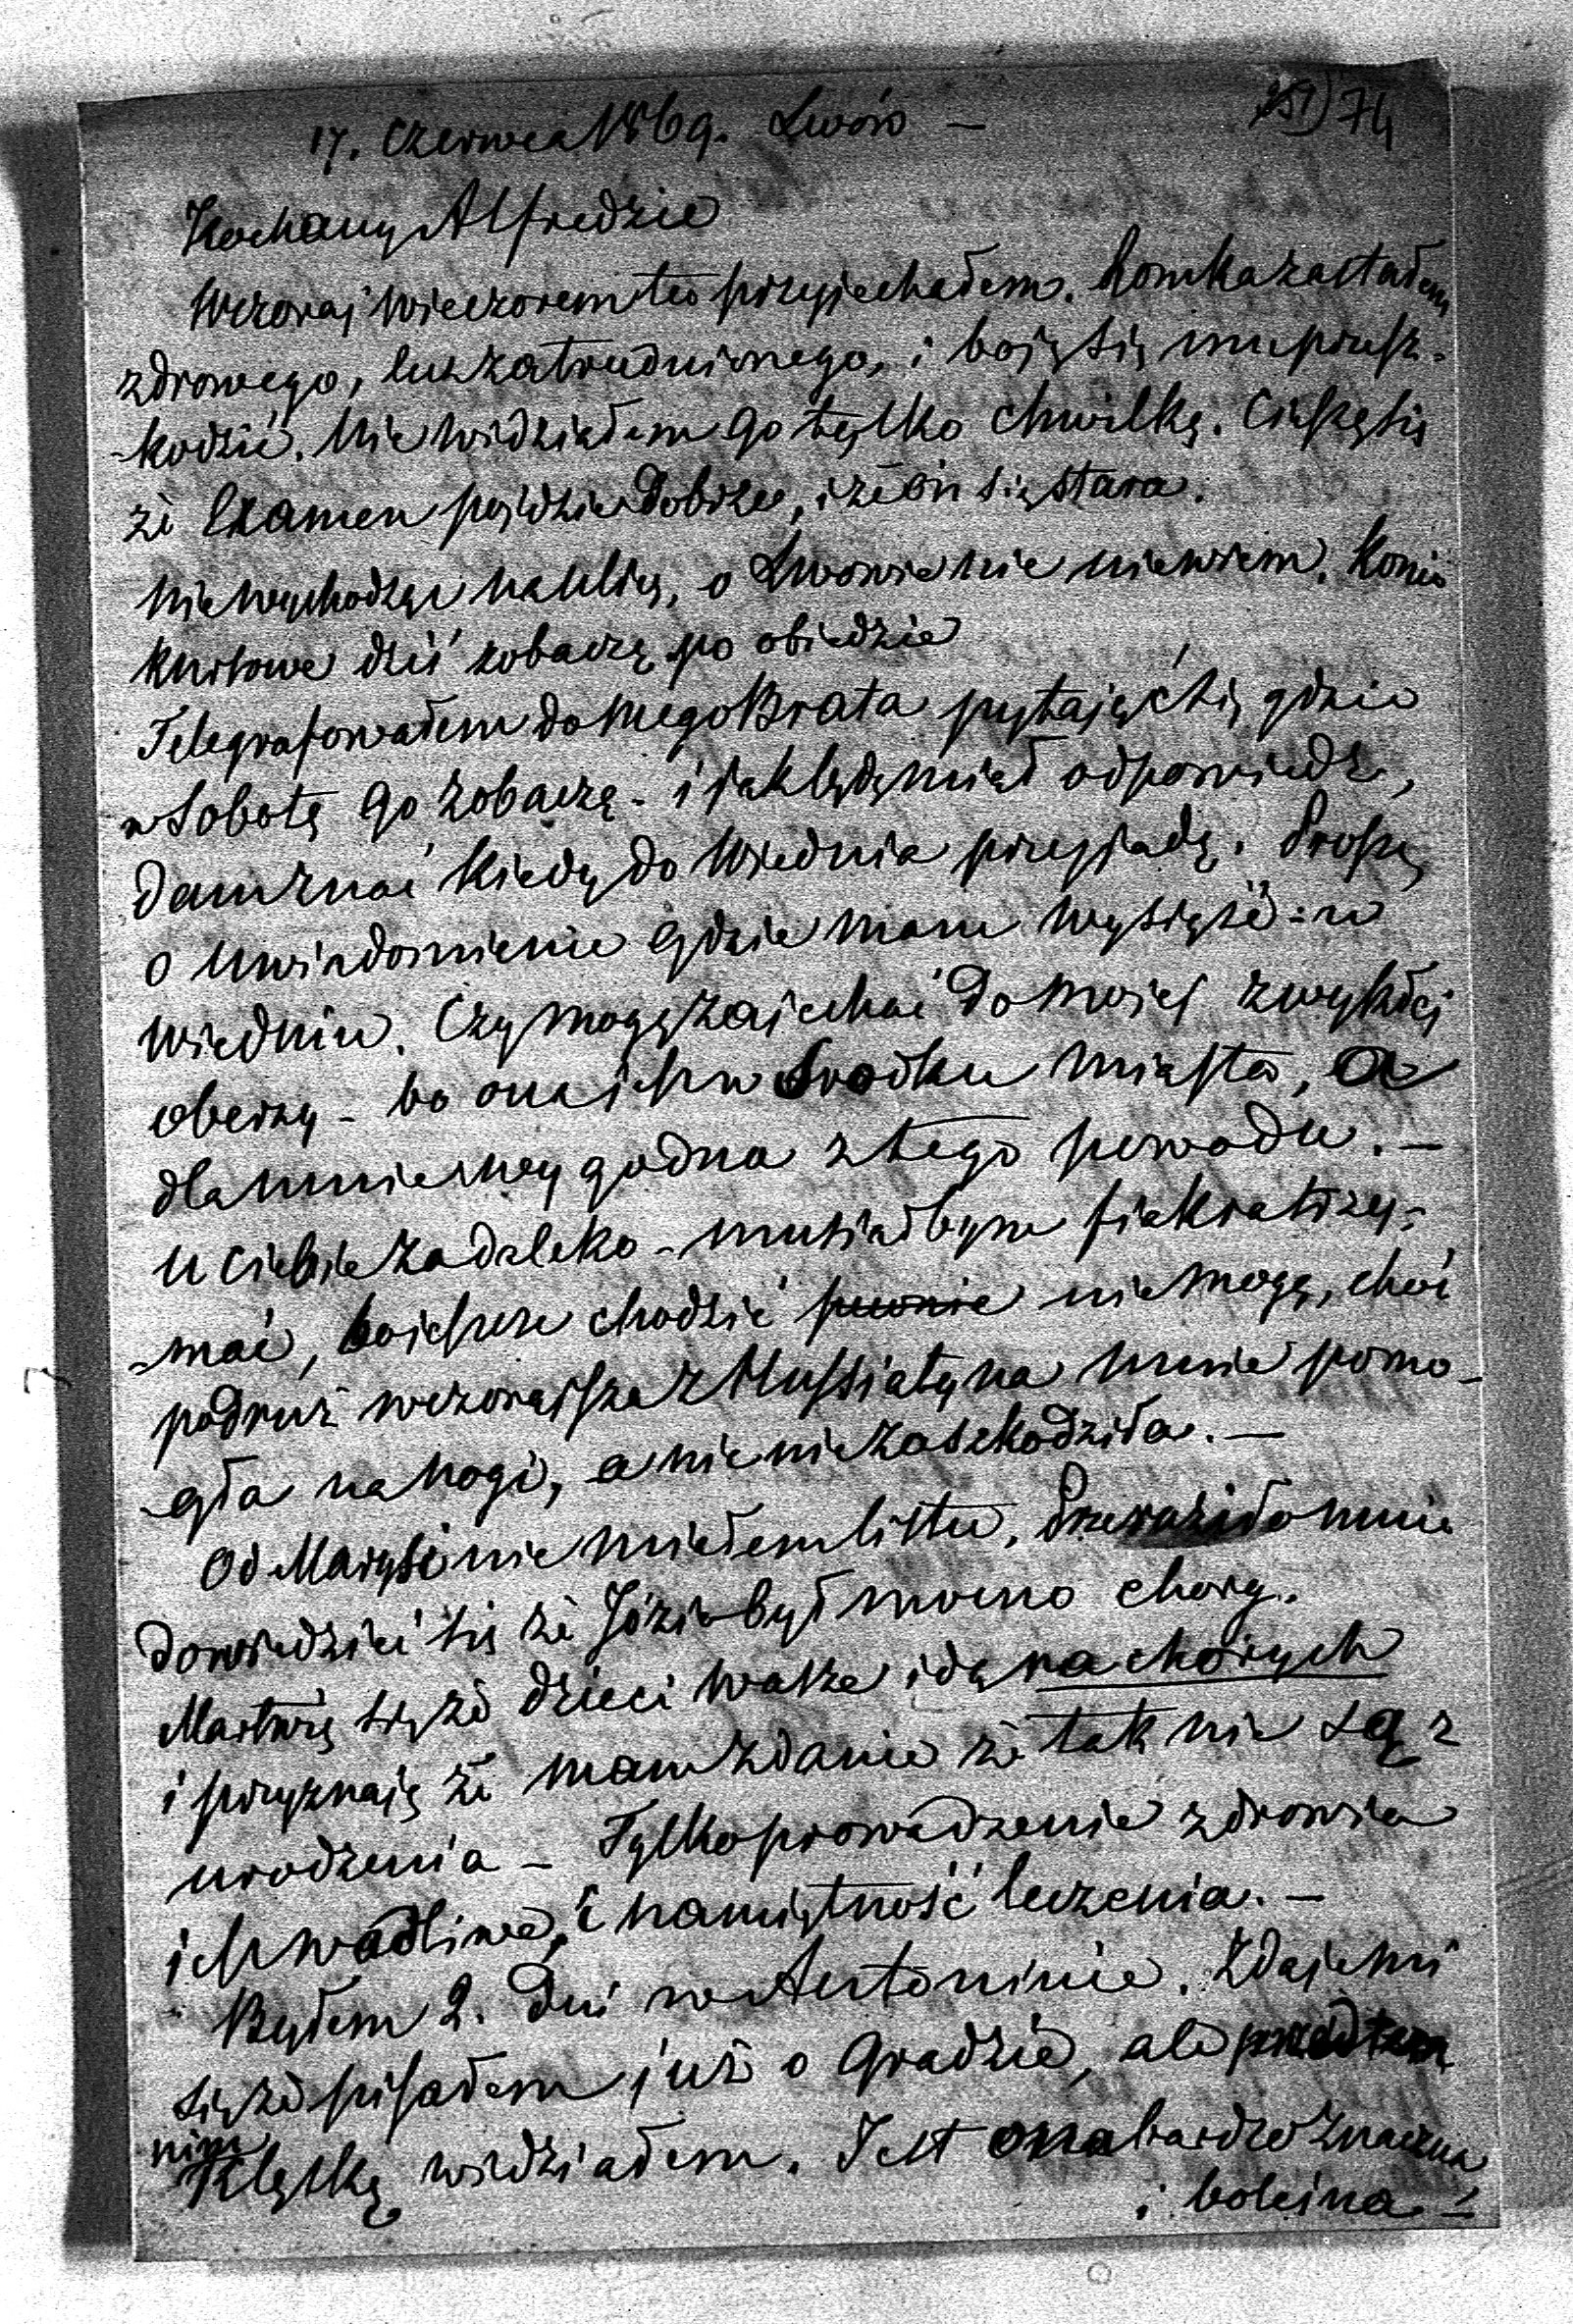 17. Czerwca 1869. Lwów —
251) 74
Kochany Alfredzie
Wczoraj wieczorem tu przyjechałem. Romka zastałem
zdrowego, lecz zatrudnionego, i boję się mu przesz-
-kodzić. Nie widziałem go tylko chwilkę. Cieszę się
że Examen pójdzie dobrze, i że on się stara.
Nie wychodząc na ulicę, o Lwowie nic nie wiem. Konie
kursowe dziś zobaczę po obiedzie
Telegrafowałem do mego Brata pytając się gdzie
w Sobotę go zobaczę - i jak będę miał odpowiedź,
dam znać kiedy do Wiednia przyjadę. Proszę
o uwiadomienie gdzie mam wysiąść w
Wiedniu. Czy mogę zajechać do mojej zwykłej
oberzy - bo ona jest w środku miasta, a
dla mnie wygodna z tego powodu. —
u Ciebie za daleko - musiałbym fiakra trzy-
-mać, bo jeszcze chodzić pewnie nie mogę, choć
podruż wczorajsza z Hussiatyna mnie pomo-
-gła na nogi, a nic nie zaszkodziła. —
Od Marysi nie miałem listu. Przeraziło mnie
dowiedzieć się że Józio był mocno chory.
Martwię się że dzieci wasze idą na chorych
i przyznaję że mam zdanie że tak nie są z
urodzenia - Tylko prowadzenie zdrowia
jest wadliwe, i namiętność leczenia. —
Byłem 2. dni w Antoninie. Zdaje mi
się że pisałem już o Gradzie, ale przedtem
nim
Klęskę widziałem. Jest ona bardzo znaczna
i boleśna —